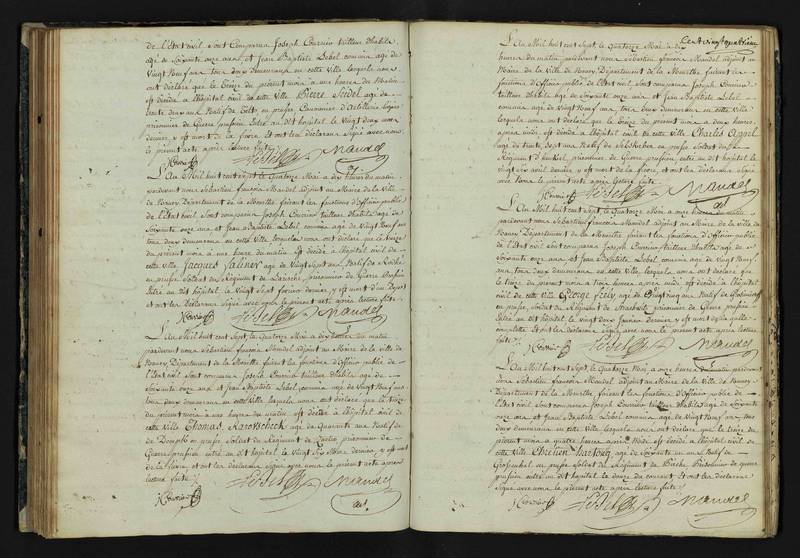 de l'Etat civil sont comparus Joseph Courrier tailleur d'habits
agé de soixante onze ans et jean Baptiste Lebel commis agé de
Vingt Neuf ans tous deux demeurans en cette ville lesquels nous
ont declaré que le treize du présent mois à une heure du matin
est décédé à l'hôpital civil de cette ville Pierre Seidel agé de
trente deux ans Natif de en prusse Canonier d'artillerie légère
prisonnier de Guerre prussien Entré au dit hôpital le vingt deux mars
dernier, y est mort de la fievre Et ont les déclarans Signé avec nous
le présent acte après lecture faite
JCourrier Lebel Mandel
adj
L'An Mil huit cent sept le Quatorze Mai a dix heures du matin
pardevant nous Sébastien françois Mandel adjoint au Maire de la Ville
de Nancy Département de la Meurthe, faisant les fonctions d'Officier public
de l'Etat civil, sont comparus Joseph Courrier tailleur d'habits agé de
Soixante onze ans et jean Baptiste Lebel commis agé de Vingt Neuf ans
tous deux demeurans en cette ville lesquels nous ont déclaré que le treize
du présent mois à une heure du matin Est décédé à l'hôpital civil de
cette ville Jacques Saliner agé de Vingt sept ans Natif de
en prusse Soldat du Régiment de prisonnier de Guerre Prussien
Entré au dit hôpital le Vingt Sept fevrier dernier y est mort d'un Depot
et ont les déclarans Signé avec nous le présent acte après lecture faite
JCourrier Lebel Mandel
adj
L'An Mil huit cent Sept, le Quatorze Mai a dix heures du matin
pardevant nous Sébastien françois Mandel adjoint au Maire de la Ville de
Nancy Département de la Meurthe faisant les fonctions d'Officier public de
l'Etat civil sont comparus Joseph Courrier tailleur d'habits agé de
Soixante onze ans et jean Baptiste Lebel commis agé de Vingt Neuf ans
tous deux demeurans en cette ville lesquels nous ont déclaré que le treize
du présent mois à une heure du matin est décédé à l'hôpital civil de
cette Ville Thomas agé de Quarante ans Natif de
en prusse, Soldat du Régiment de prisonnier de
Guerre prussien entré au dit hôpital le vingt Six Mars dernier y est mort
de la fievre, et ont les déclarans Signé avec nous le présent acte après
lecture faite
JCourrier Lebel Mandel
adj
Cent vingt quatrieme
L'An Mil huit cent Sept le Quatorze Mai a dix
heures du matin pardevant nous Sébastien françois Mandel adjoint au
Maire de la Ville de Nancy Département de la Meurthe faisant les
fonctions d'Officier public de l'Etat civil sont comparus Joseph Courrier
tailleur d'habits agé de Soixante onze ans et jean Baptiste Lebel
commis agé de Vingt Neuf ans tous deux demeurans en cette Ville
lesquels nous ont déclaré que le treize du présent mois à deux heures
après midi est décédé à l'hôpital civil de cette ville Charles
agé de trente sept ans Natif de en prusse Soldat du
Régiment prisonnier de Guerre prussien, entré au dit hôpital le
vingt six avril dernier y est mort de la fievre, et ont les déclarans Signé
avec nous le présent acte après lecture faite
JCourrier Lebel Mandel
adj
L'An Mil huit cent Sept, le Quatorze Mai a onze heures du matin
pardevant nous Sébastien françois Mandel adjoint au Maire de la Ville de
Nancy Département de la Meurthe faisant les fonctions d'Officier public
de l'Etat civil, sont comparus Joseph Courrier tailleur d'habits agé de
Soixante onze ans et jean Baptiste Lebel commis agé de Vingt Neuf
ans tous deux demeurans en cette ville, lesquels nous ont déclaré que
le treize du présent mois à trois heures après midi est décédé à l'hôpital
civil de cette Ville George agé de Vingt cinq ans Natif de
en prusse, Soldat du Régiment de prisonnier de Guerre prussien
Entré au dit hôpital le vingt deux janvier dernier, y est mort de la
Et ont les déclarans Signé avec nous le présent acte après lecture
faite
JCourrier Lebel Mandel
adj
L'An Mil huit cent Sept, le Quatorze Mai a onze heures du matin pardevant
nous Sébastien françois Mandel adjoint au Maire de la Ville de Nancy
Département de la Meurthe, faisant les fonctions d'Officier public de
l'Etat civil sont comparus Joseph Courrier tailleur d'habits agé de Soixante
onze ans, et jean Baptiste Lebel commis agé de Vingt Neuf ans tous
deux demeurans en cette Ville lesquels nous ont déclaré que le treize du
présent mois à quatre heures après Midi est décédé à l'hôpital civil de
cette Ville Chretien Hartong agé de Soixante un ans Natif de
en prusse Soldat du Régiment de Prisonnier de guerre
prussien entré au dit hôpital le douze du courant et ont les déclarans
Signé avec nous le présent acte après lecture faite
JCourrier Lebel Mandel
adj